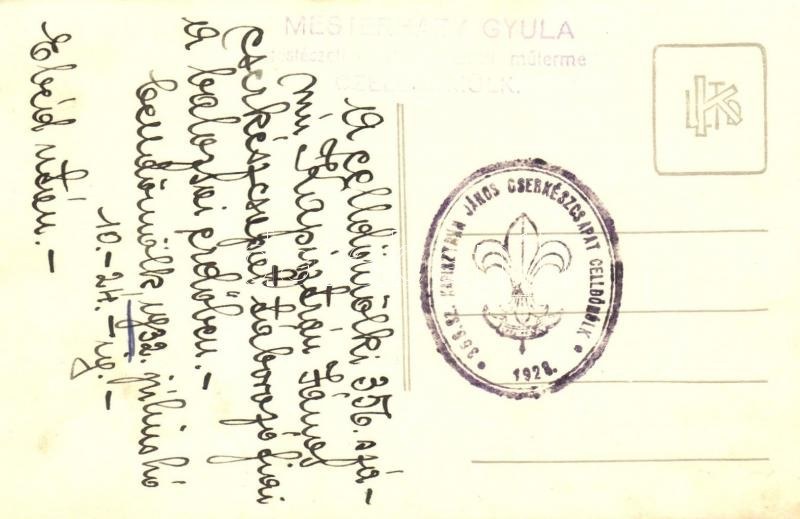 MESTERHÁZY GYULA
műterme
CZELLDÖMÖLK.
A celldömölki 356. szá-
mú Kapisztrán János
Cserkészcsapat táborozó fiai
a balozsai erdőben.-
Celldömölk, 1932. július hó
10.-24.-ig.-
Ebéd után.-
356.SZ. KAPISZTRÁN JÁNOS CSERKÉSZCSAPAT CELLDÖMÖLK
1928.